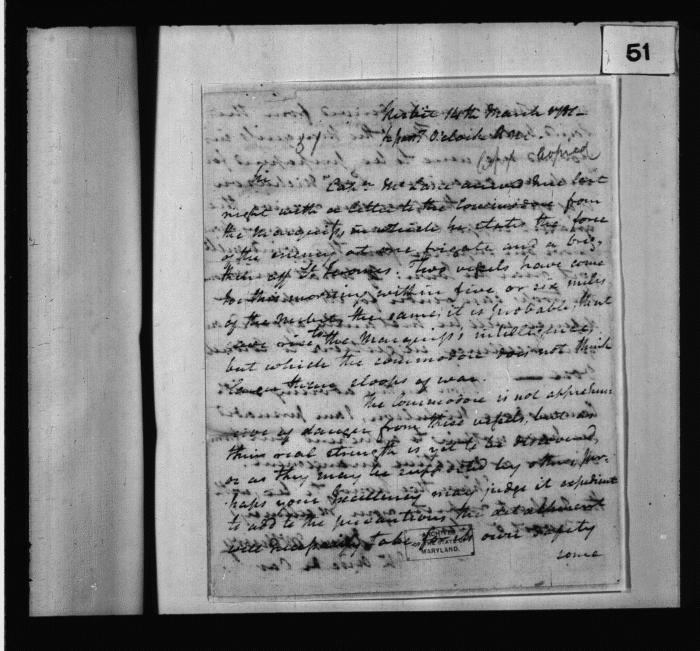 51
14th March 1781
o'clock
Copied
Sir
Capn. McLane arrived here last
night with a letter to the Commodore from
the Marquiss in which he states the force
of the enemy at one frigate and a brig,
then off St. Thomas: Two vessels have come
to this morning within five or six miles
of the the same it is probable that
gave rise to the Marquiss's intelligence
but which the commodore does not think
larger than sloops of war.
The Commodore is not apprehen-
sive of danger from these vessels, but as
their real strength is yet to be discovered
or as they may be supported by others, per-
haps your Excellency may judge it expedient
to add to the precautions the detachment
will necessarily take for its own safety
some
ARCHIVES
OF THE STATE OF
MARYLAND.